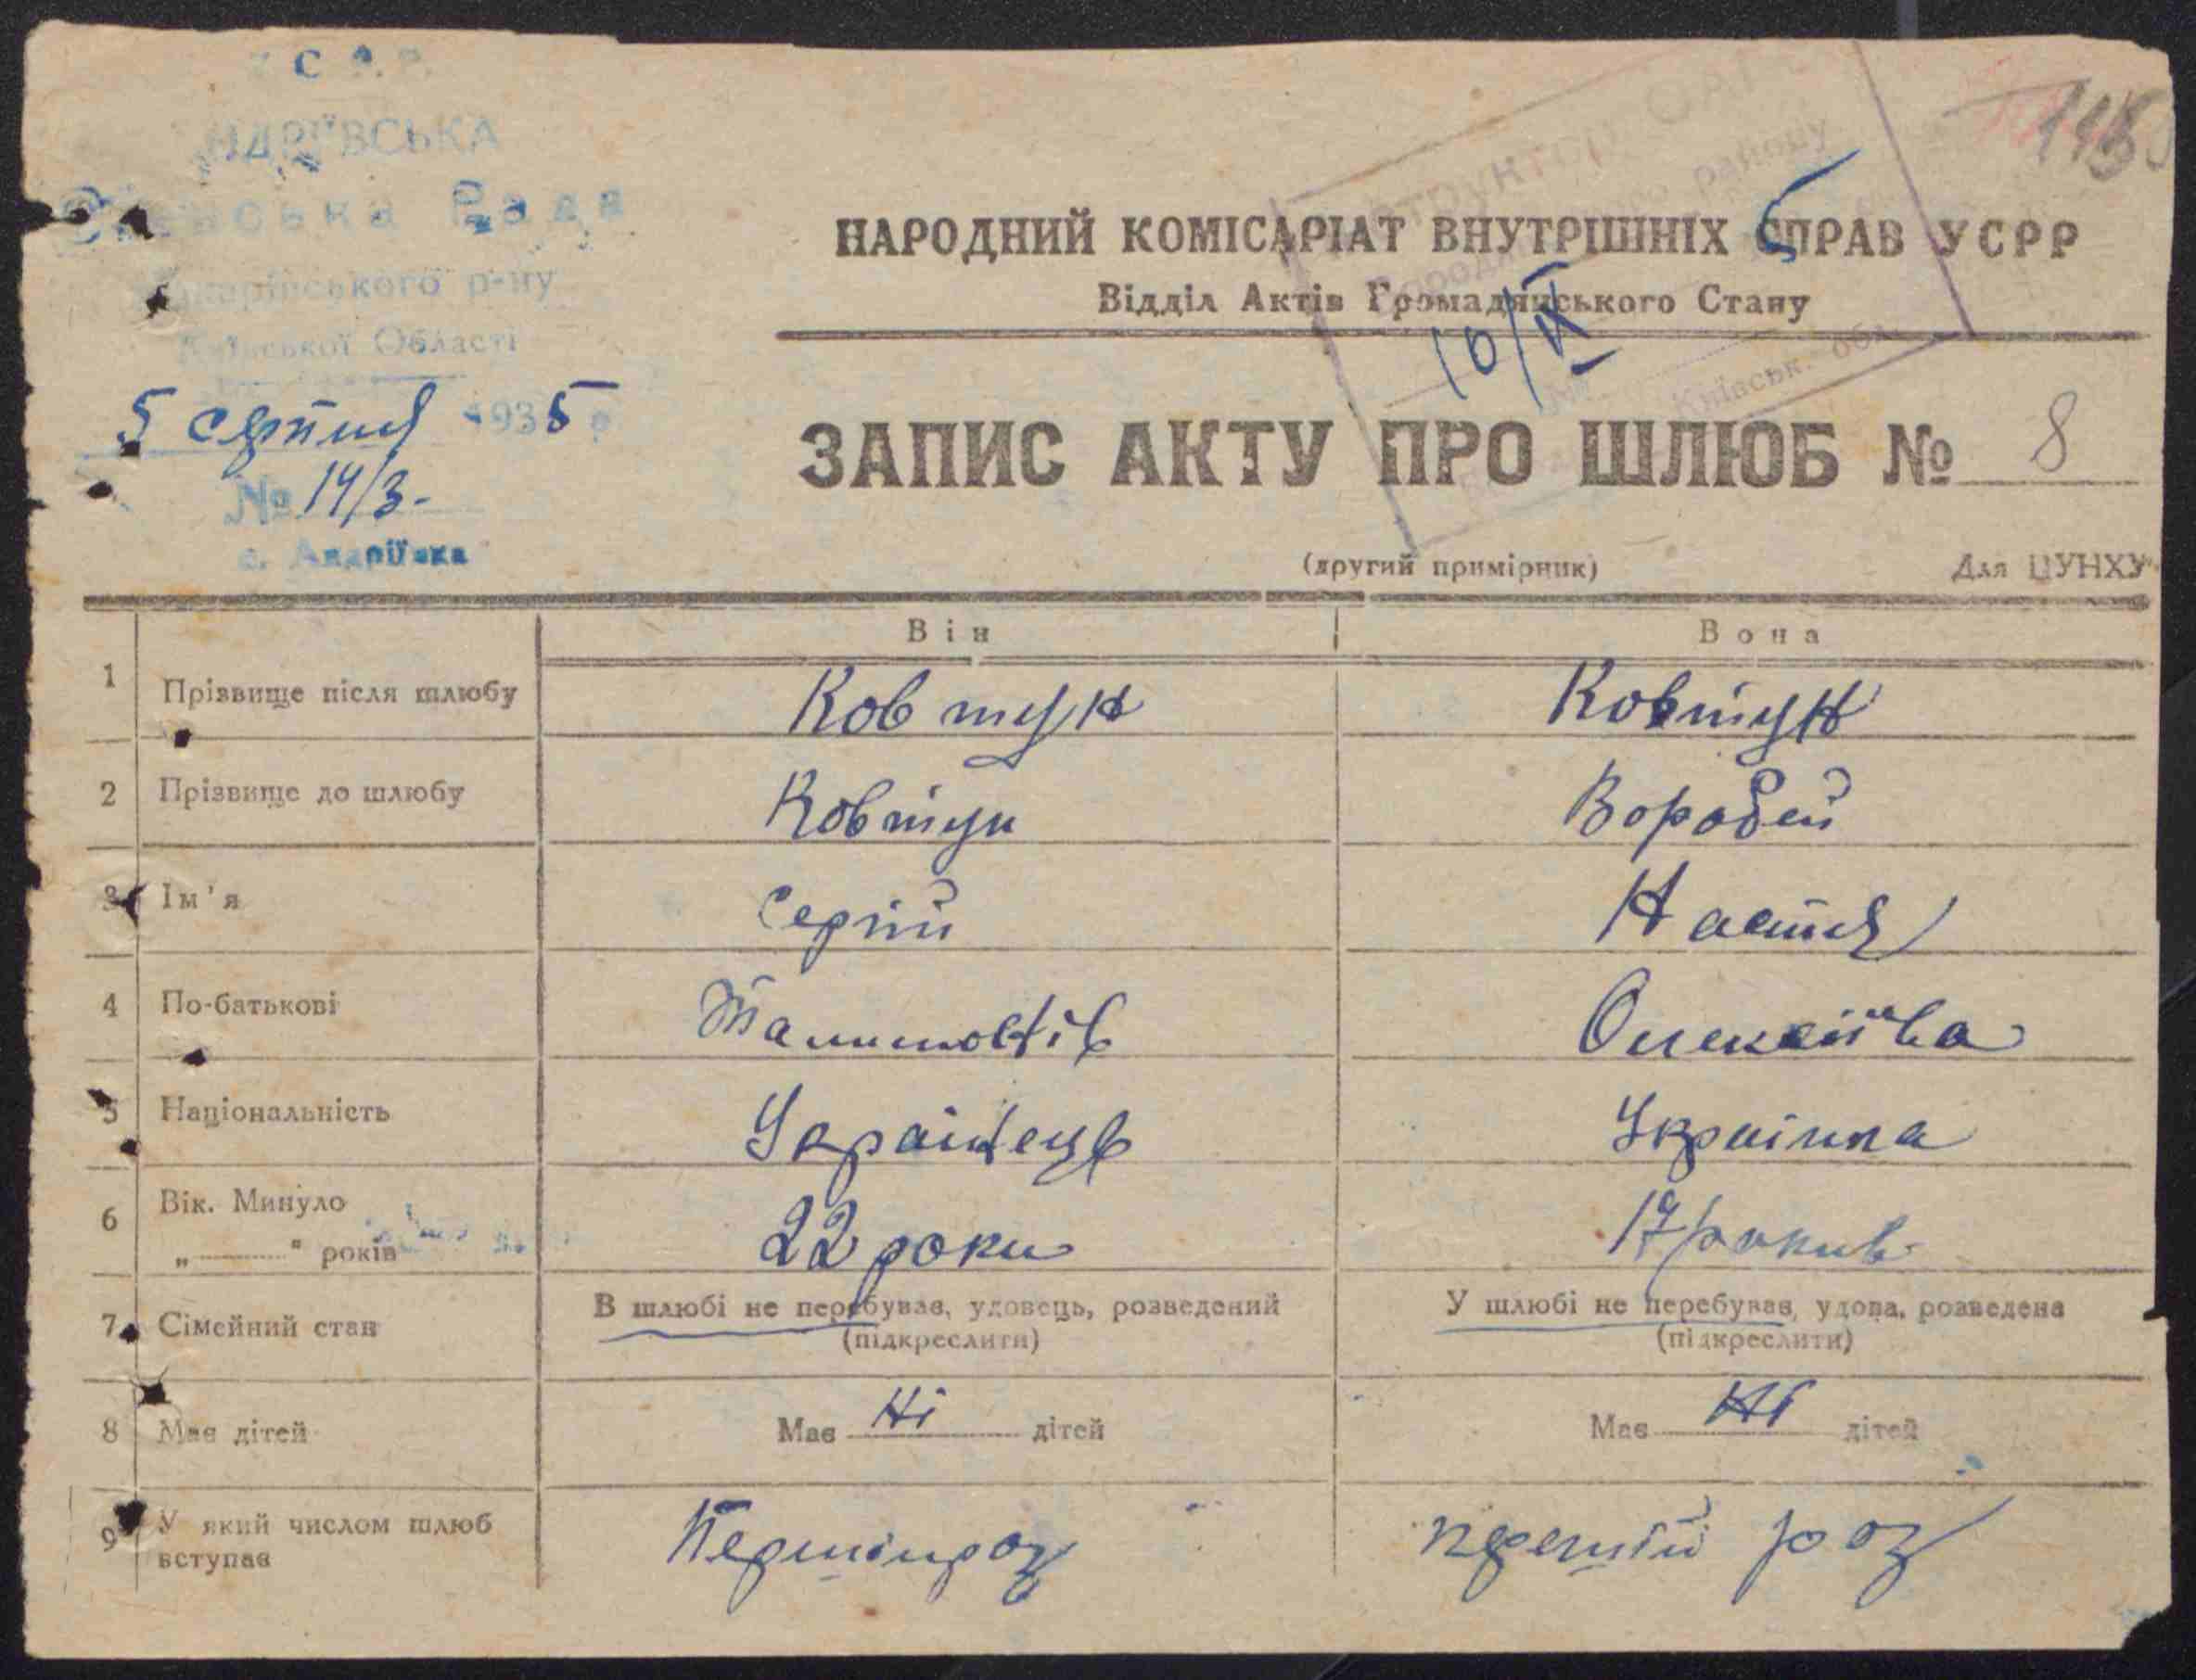 НДРІЇВСЬКА
Рада
р-ну
Київської Області
5 серпня 1935 р
№ 14/3-
с. Андріївка
НАРОДНИЙ КОМІСАРІАТ ВНУТРІШНІХ СПРАВ УСРР
Відділ Актів Громадянського Стану
10/IX
ЗАПИС АКТУ ПРО ШЛЮБ № 8
(другий примірник) Для ЦУНХУ
Він Вона
1 Прізвище після шлюбу Ковтун Ковтун
2 Прізвище до шлюбу Ковтун Воробей
3 Ім'я Сергій Настя
4 По-батькові Олексіїва
5 Національність Українець Українка
6 Вік. Минуло
„ " років 22 роки 17 рокив
7 Сімейний стан В шлюбі не перебував, удовець, розведений У шлюбі не перебував, удова, розведена
(підкреслити) (підкреслити)
8 Має дітей Має Ні дітей Має Ні дітей
9 У який числом шлюб
вступає Перший раз перший раз